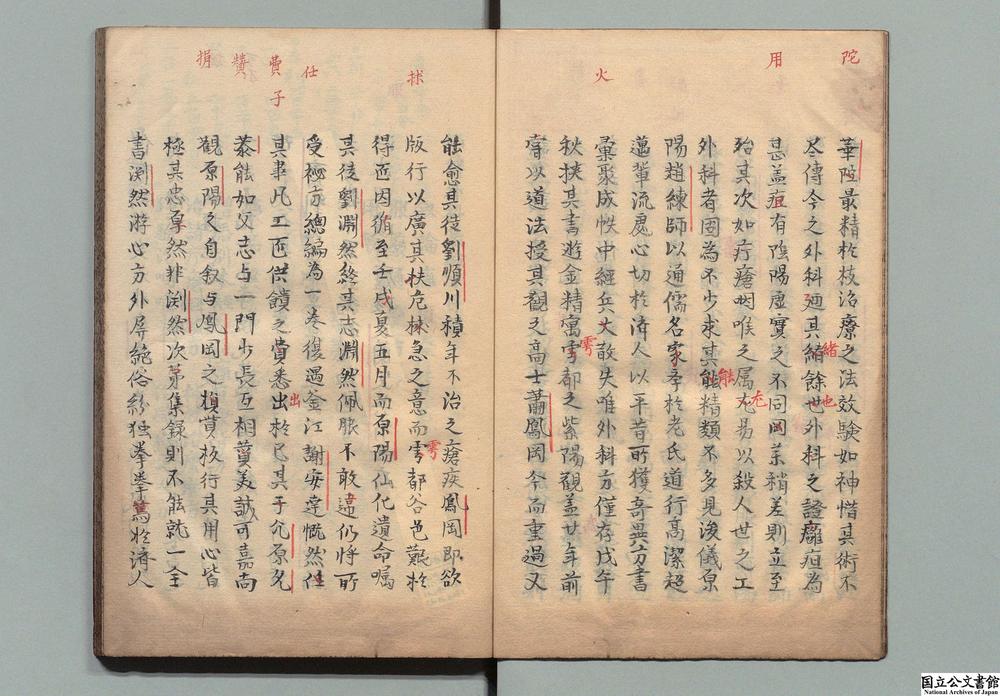 陀
用
火
華陀最精於枝治療之法效験如神惜其術不
尽傳今之外科廼其緒餘也外科之證癰疽為
甚盖疽有陰陽虚實之不同用薬稍差則立至
殆其次如疔瘡咽喉之属尤易以殺人世之工
外科者固為不少求其能精類不多見浚儀原
陽趙練師以通儒名家存於老氏道行高潔超
邁輩流處心切於済人以平昔所獲奇異方書
彙聚成帙中經兵火散失唯外科方僅存戊午
秋挟其書遊金精寓雩都之紫陽觀盖廿年前
甞以道法授其觀之高士蕭鳳岡今而重過又
緒
也
能
尤
雩
捄
任
費
子
賛
捐
能愈其徒劉順川積年不治之瘡疾鳳岡即欲
版行以廣其扶危捄急之意而雩都谷邑艱於
得匠因循至壬戌夏五月而原陽仙化遺命嘱
其徒劉淵然終其志淵然佩服不敢違仍将所
受秘方總編為一巻復過釜江謝安達慨然任
其事凡工匠供饋之費悉出於已其子允原允
恭能如父志与一門少長互相賛美誠可嘉尚
觀原陽之自叙与鳳岡之損貲板行其用心皆
極其忠厚然非渕然次第集録則不能就一全
書渕然游心方外屏絶俗紛独拳拳篤於済人
雩
出
国立公文書館
National Archives of Japan